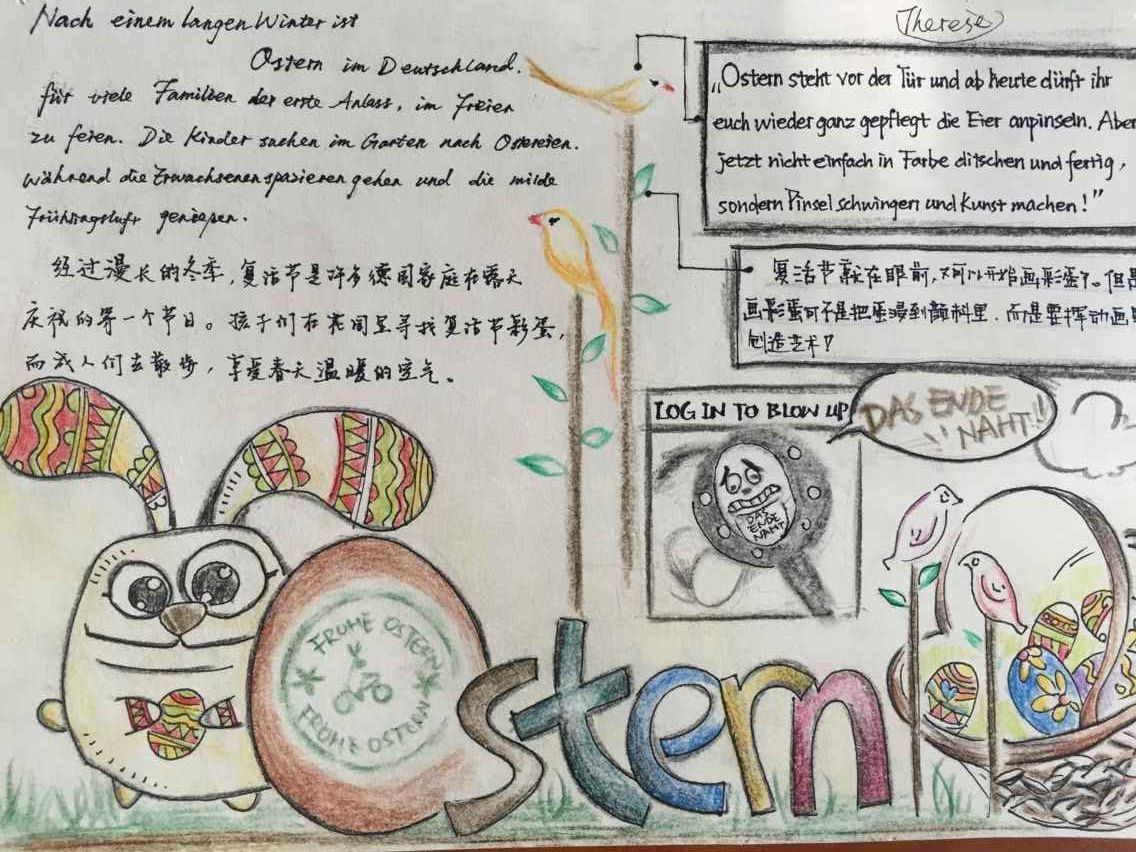 Nach einem langen Winter ist
Ostern in Deutschland.
für viele Familien der erste Anlass, im Freien
zu feiern. Die Kinder suchen im Garten nach Ostereien.
während die Erwachsenen spazieren gehen und die milde
Frühlingsluft genießen.
经过漫长的冬季,复活节是许多德国家庭在露天
庆祝的第一个节日。孩子们在花园里寻找复活节彩蛋,
而成人们去散步,享受春天温暖的空气。
Therese
„Ostern steht vor der Tür und ab heute dürft ihr
euch wieder ganz gepflegt die Eier anpinseln. Aber
jetzt nicht einfach in Farbe ditschen und fertig,
sondern Pinsel schwingen und Kunst machen!"
复活节就在眼前,又可以开始画彩蛋了。但是
画彩蛋可不是把蛋浸到颜料里,而是要挥动画
创造艺术!
LOG IN TO BLOW UP
DAS ENDE
NAHT!!
DAS
ENDE
NAHT
FROHE OSTERN
FROHE OSTERN
Ostern